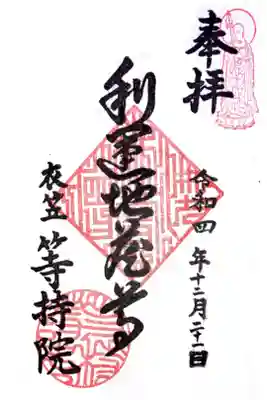 奉拝
令和四年十二月二十一日
利運地蔵尊
衣笠 等持院